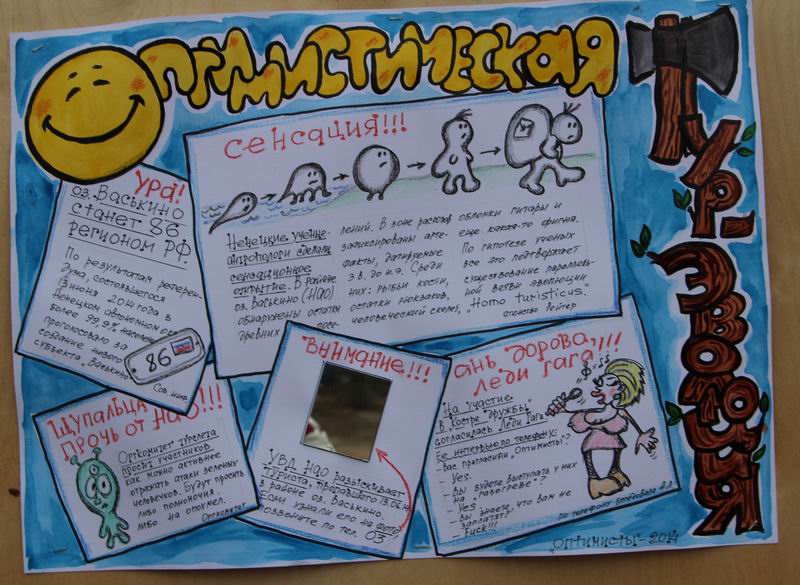 Оптимистическая
Тур-Эволюция
СЕНСАЦИЯ!!!
Ненецкие ученые
антропологи сделали
сенсационное
открытие. В районе
оз. Васькино (НАО)
обнаружены остатки
древних посе-
лений. В зоне раскопок
зафиксированы арте-
факты, датируемые
3 в. до н.э. Среди
них: рыбьи кости,
остатки рюкзаков,
человеческий скелет,
обломки гитары и
еще какая-то фигня.
По гипотезе ученых
все это подтверждает
существование параллель-
ной ветви эволюции
"Homo turisticus."
агенство Рейтер
УРА!
оз. Васькино
станет 86
регионом РФ
По результатам референ-
дума, состоявшегося
13 июня 2014 года в
Ненецком автономном ок.
более 99,9% населения
проголосовало за
создание нового
субъекта "Васькино"
86
Сов. инф.
ЩУПАЛЬЦА
ПРОЧЬ ОТ НАО!!!
Оргкомитет турслета
просит участников
как можно активнее
отражать атаки зеленых
человечков. Будут просить
либо полномочия,
либо на опохмел.
Оргкомитет
ВНИМАНИЕ!!!
УВД НАО разыскивает
туриста, пропавшего 13.06.14
в районе оз. Васькино
Если узнали его на фото,
позвоните по тел. 03
АНЬ ДОРОВА,
ЛЕДИ ГАГА!!!
На участие
в костре "дружбы"
согласилась Леди Гага
Ее интервью по телефону:
- Вас пригласили "Оптимисты"?
- Yes.
- Вы будете выступать у них
на "разогреве"?
- Yes
- Вы знаете, что вам не
заплатят?
- Fuck!!!
по телефону беседовала
"Оптимисты"-2014